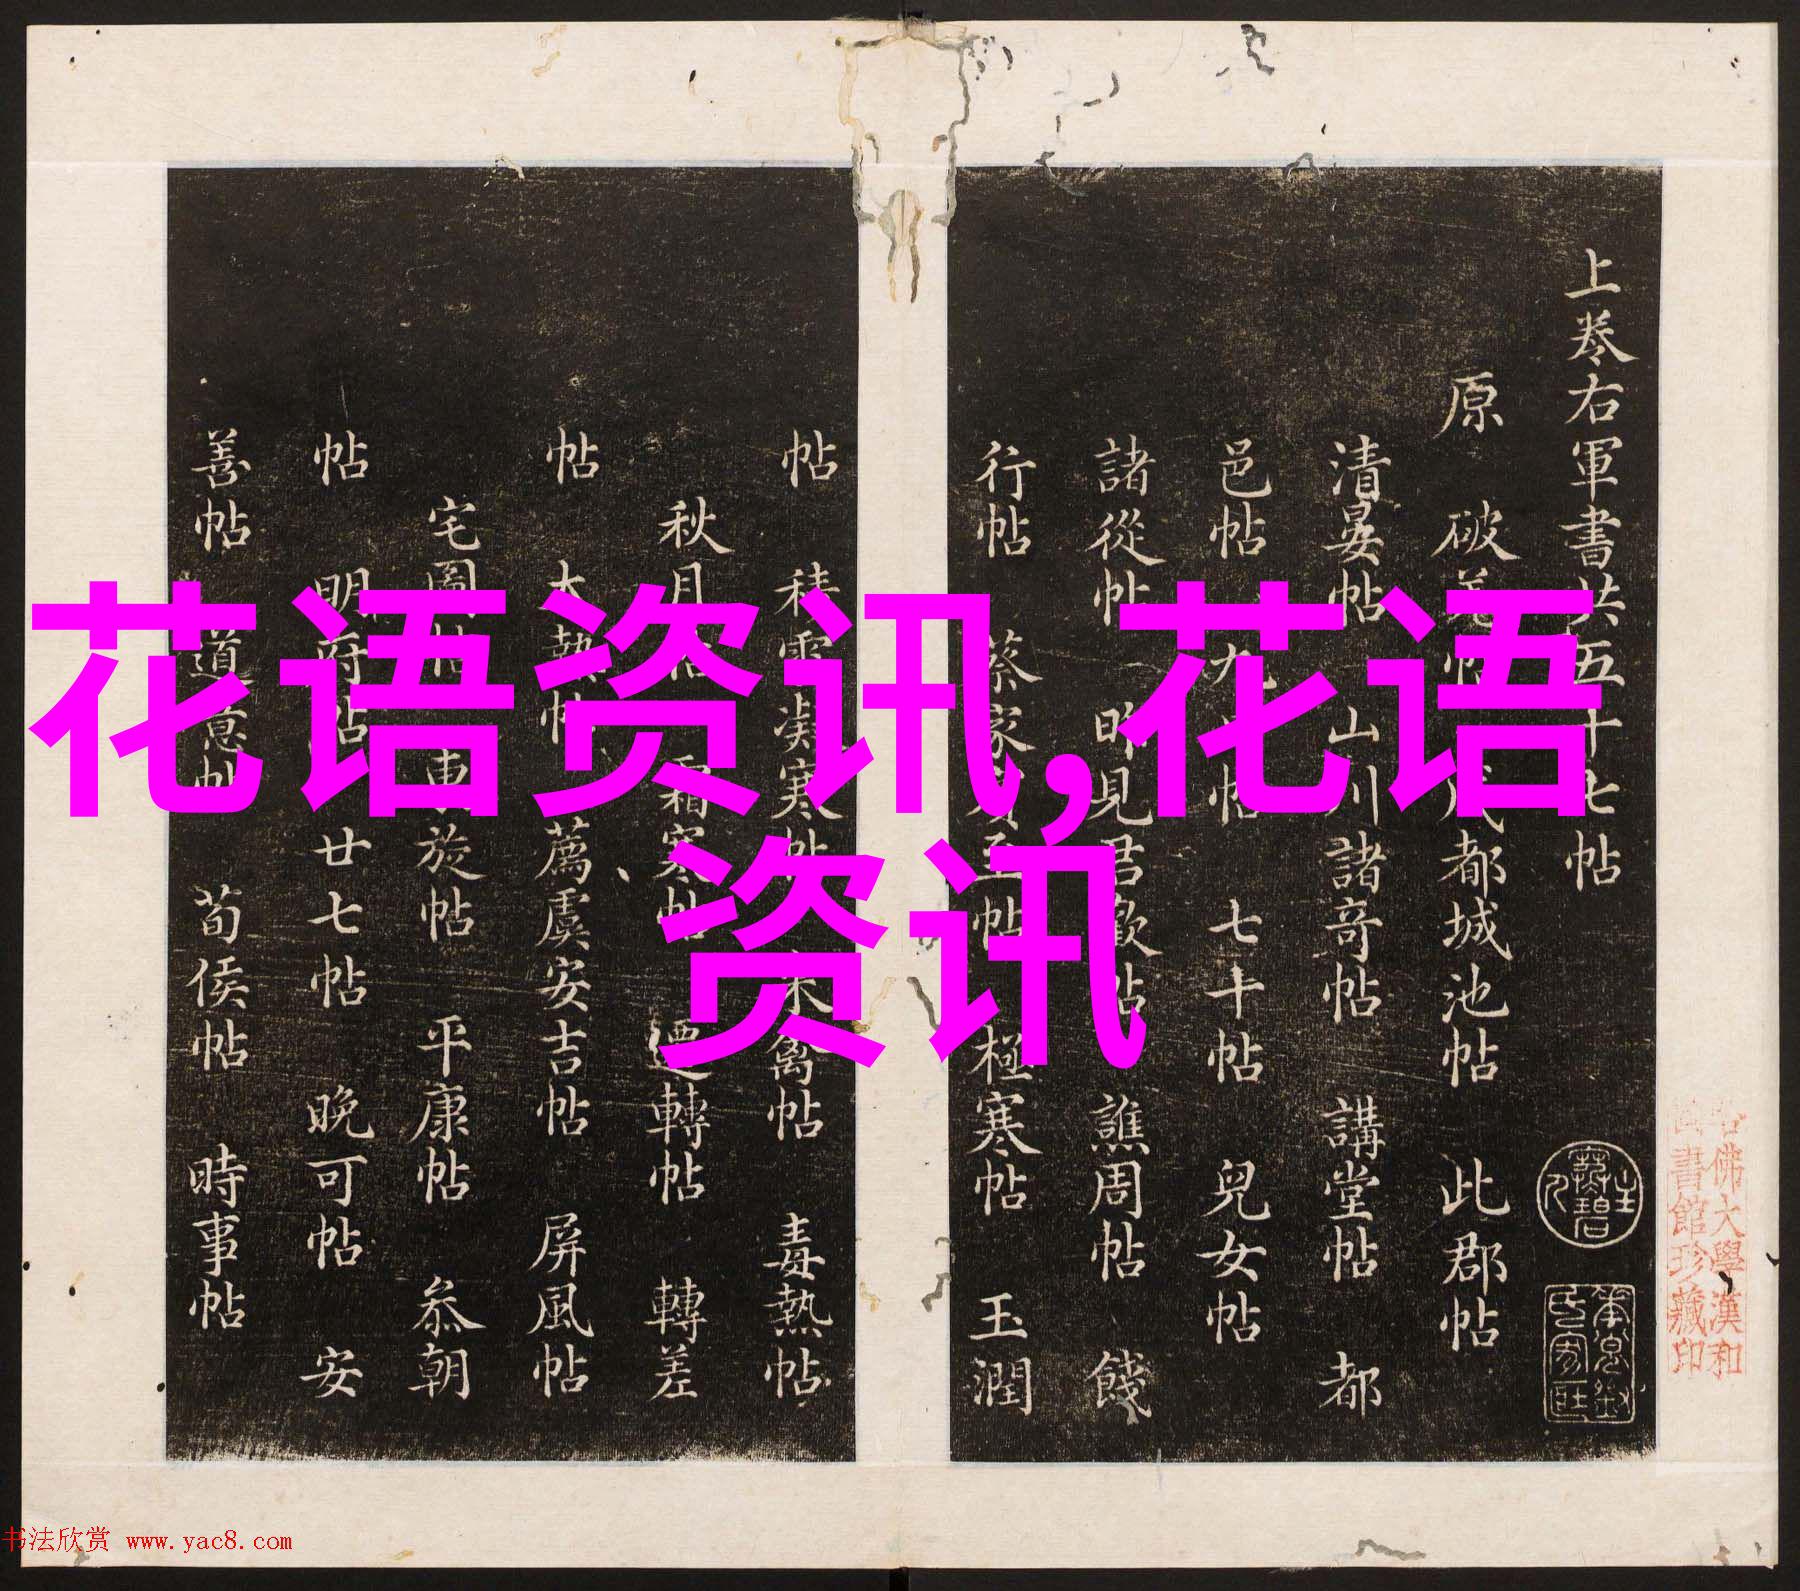 花语资讯,花语
资讯
上卷右軍書共五十七帖
原 破羌帖 成都城池帖 此郡帖
清晏帖 山川諸奇帖 講堂帖 都
邑帖 七十帖 兒女帖
諸從帖 昨見君歡帖 譙周帖 餞
行帖 蔡家賓至帖 極寒帖 玉潤
帖 積雪凝寒帖 來禽帖 毒熱帖
秋月帖 霜寒帖 遷轉帖 轉差
帖 大熱帖 薦虞安吉帖 屏風帖
宅圖帖 東旋帖 平康帖 叅朝
帖 明府帖 廿七帖 晚可帖 安
善帖 道意帖 荀侯帖 時事帖
佛大學漢和
圖書館珍藏印
书法欣赏 www.yac8.com